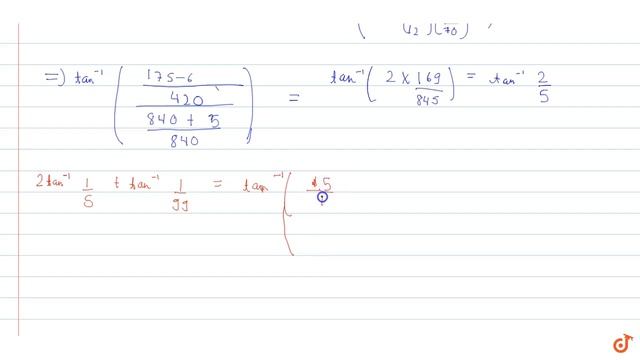 ( 12 )( 70 )
=) tan⁻¹ ( ( (175-6)/420 ) / ( (840 + 5)/840 ) ) = tan⁻¹ ( 2 × 169/845 ) = tan⁻¹ 2/5
2 tan⁻¹ 1/5 + tan⁻¹ 1/99 = tan⁻¹ ( 5